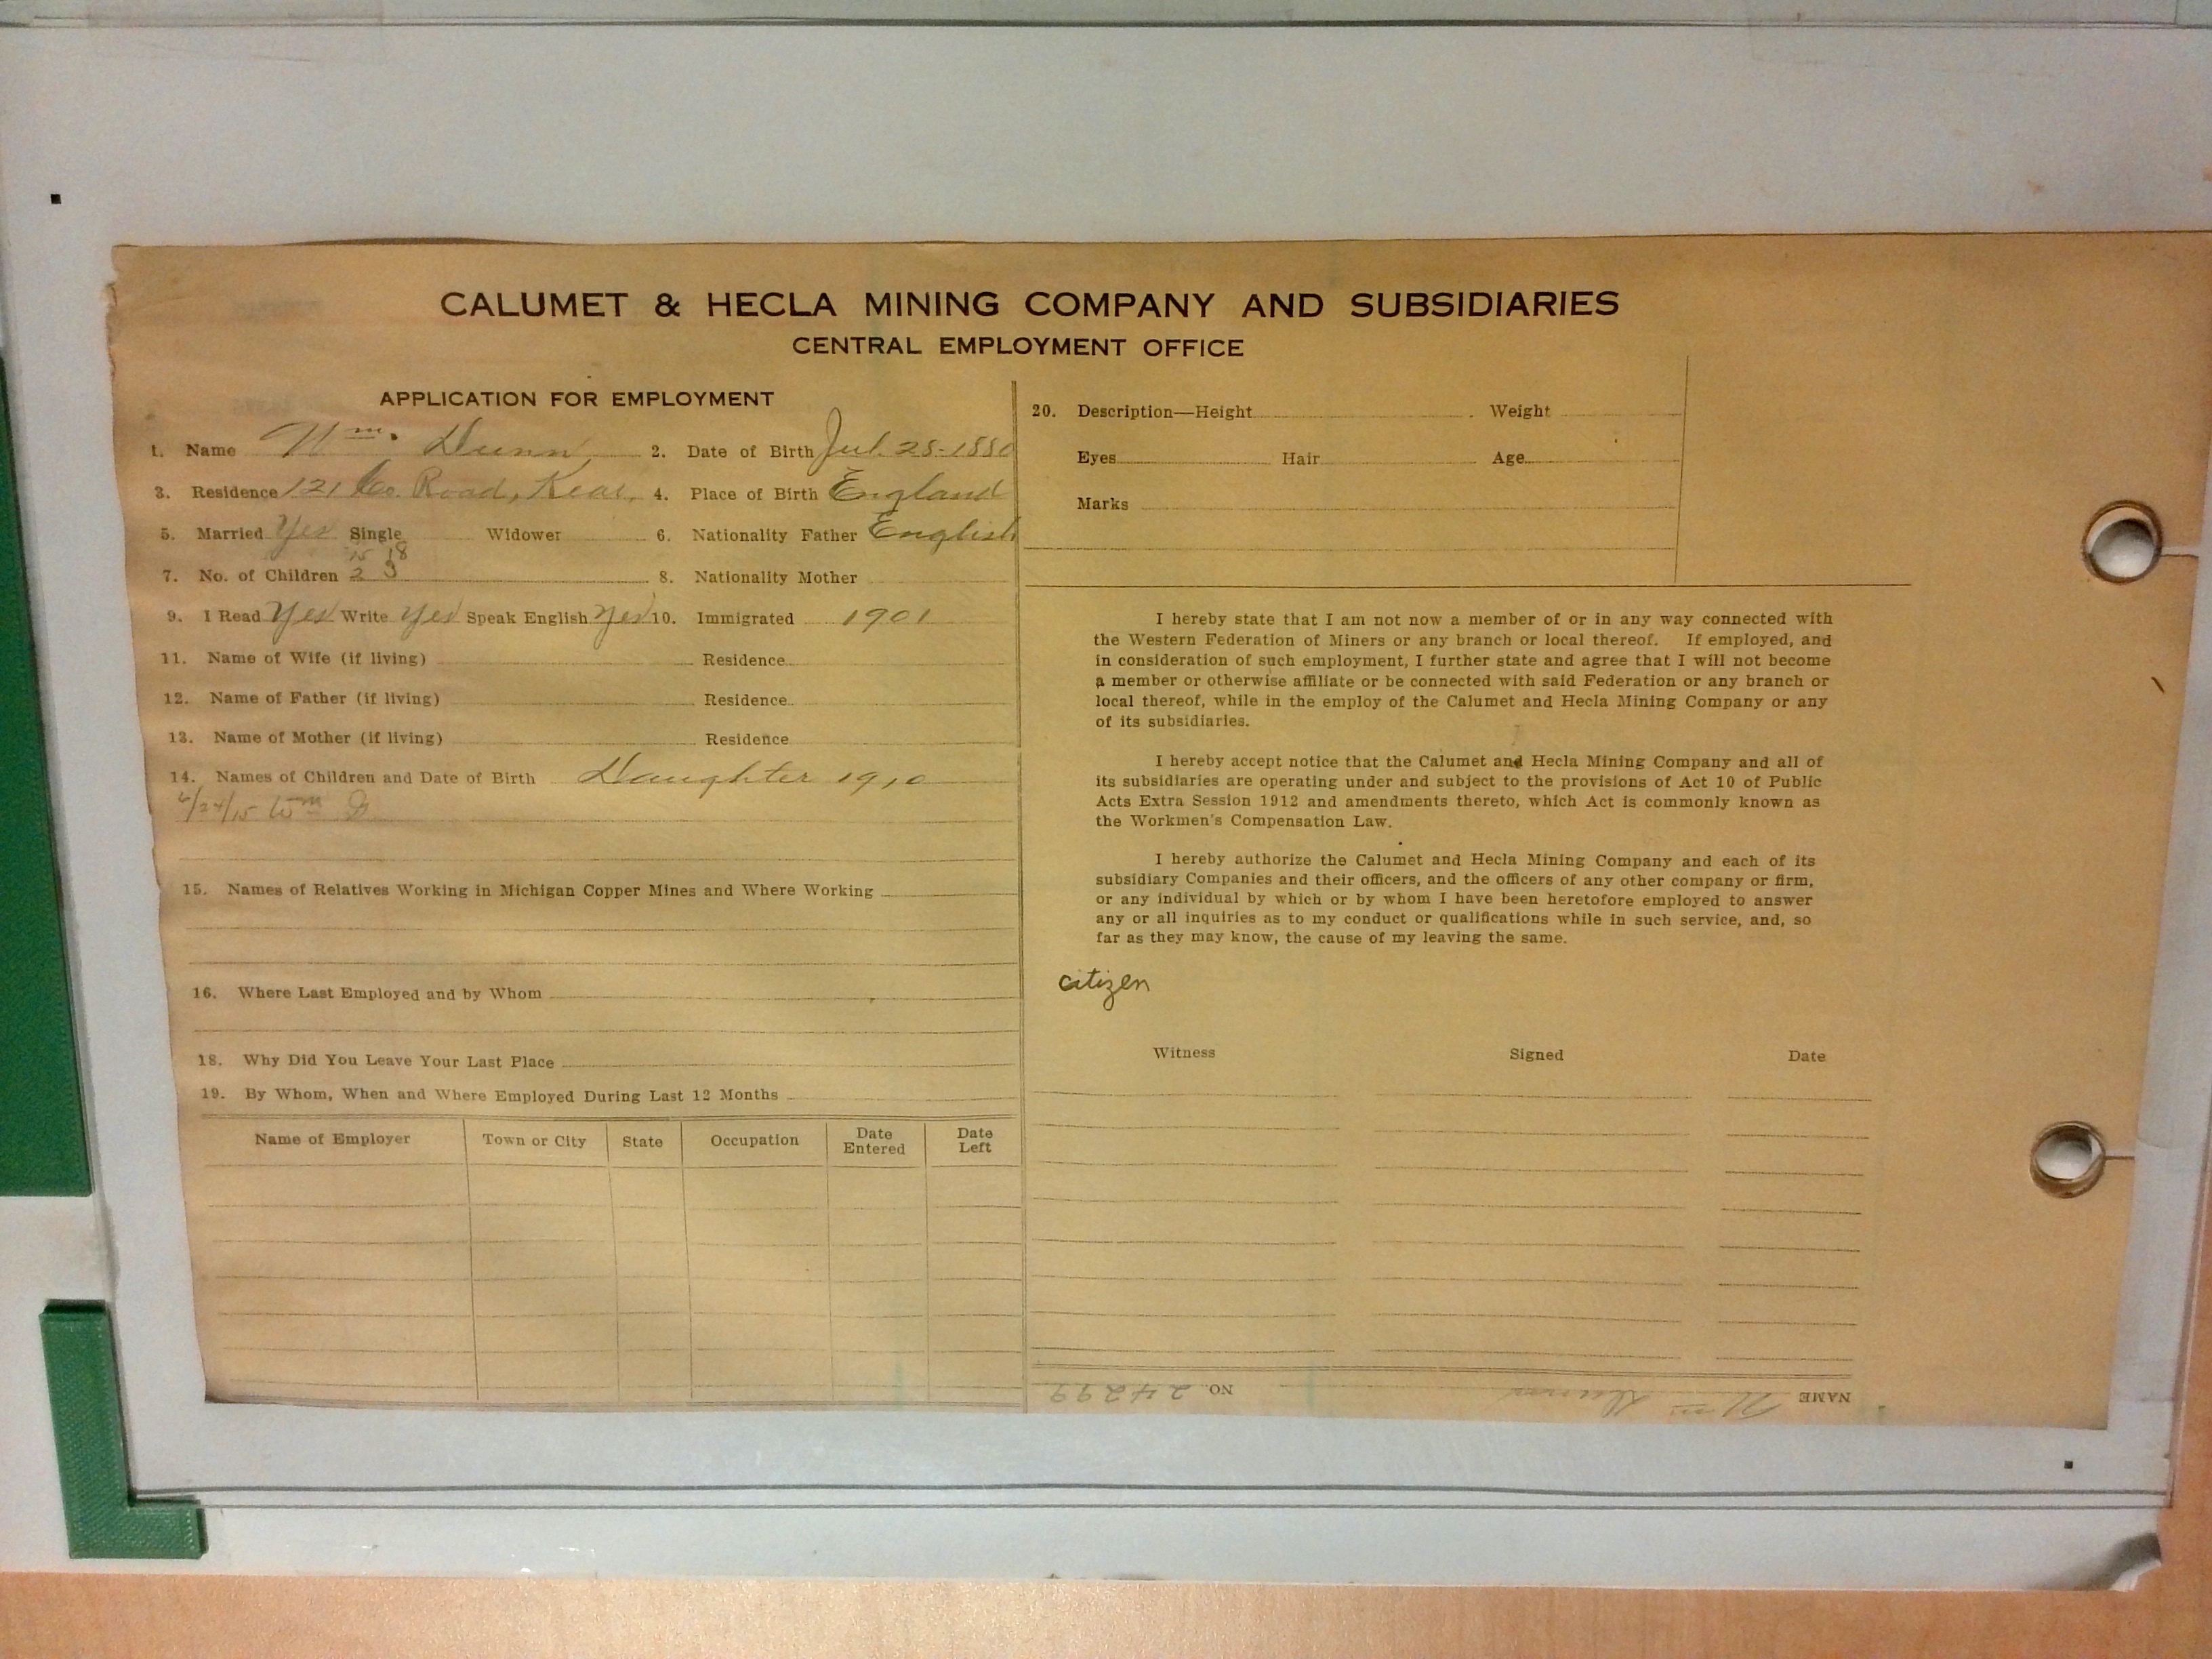 CALUMET & HECLA MINING COMPANY AND SUBSIDIARIES
CENTRAL EMPLOYMENT OFFICE
APPLICATION FOR EMPLOYMENT
1. Name Wm. Dunn 2. Date of Birth Jul. 28-1880
3. Residence 121 Co. Road, Kear. 4. Place of Birth England
5. Married Yes Single Widower 6. Nationality Father English
15 18
7. No. of Children 2 3 8. Nationality Mother
9. I Read Yes Write Yes Speak English Yes 10. Immigrated 1901
11. Name of Wife (if living) Residence
12. Name of Father (if living) Residence
13. Name of Mother (if living) Residence
14. Names of Children and Date of Birth Daughter 1910
6/24/15 Wm D
15. Names of Relatives Working in Michigan Copper Mines and Where Working
16. Where Last Employed and by Whom
18. Why Did You Leave Your Last Place
19. By Whom, When and Where Employed During Last 12 Months
Name of Employer Town or City State Occupation Date Entered Date Left
20. Description—Height Weight
Eyes Hair Age
Marks
I hereby state that I am not now a member of or in any way connected with
the Western Federation of Miners or any branch or local thereof. If employed, and
in consideration of such employment, I further state and agree that I will not become
a member or otherwise affiliate or be connected with said Federation or any branch or
local thereof, while in the employ of the Calumet and Hecla Mining Company or any
of its subsidiaries.
I hereby accept notice that the Calumet and Hecla Mining Company and all of
its subsidiaries are operating under and subject to the provisions of Act 10 of Public
Acts Extra Session 1912 and amendments thereto, which Act is commonly known as
the Workmen's Compensation Law.
I hereby authorize the Calumet and Hecla Mining Company and each of its
subsidiary Companies and their officers, and the officers of any other company or firm,
or any individual by which or by whom I have been heretofore employed to answer
any or all inquiries as to my conduct or qualifications while in such service, and, so
far as they may know, the cause of my leaving the same.
citizen
Witness Signed Date
NAME Wm Dunn NO. 24299